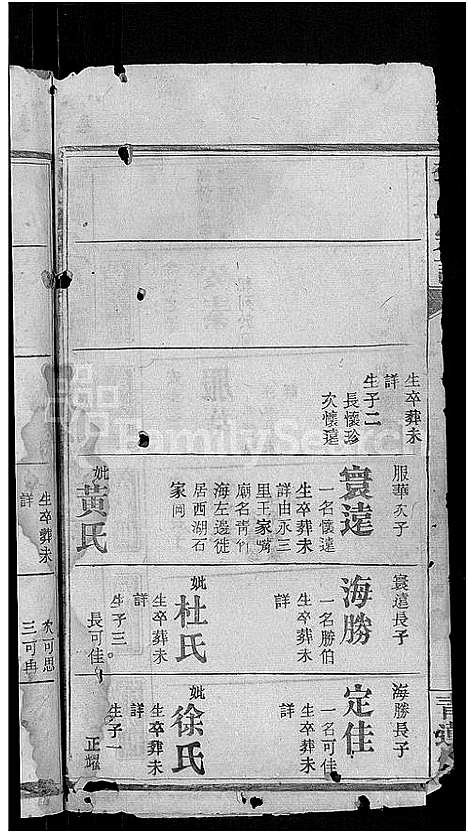 生卒葬未
詳
生子二
長懷珍
次懷遠
服華次子
寰遠
一名懷達
生卒葬未
詳由永三
里王家嘴
廟名青竹
海左邊徙
居西湖石
家岡
妣黃氏
寰遠長子
海勝
一名勝伯
生卒葬未
詳
妣杜氏
生卒葬未
詳
生子三。
長可佳
海勝長子
定佳
一名可佳
生卒葬未
詳
妣徐氏
生卒葬未
詳
生子一
正耀
生卒葬未
詳
次可思
三可冉
FamilySearch